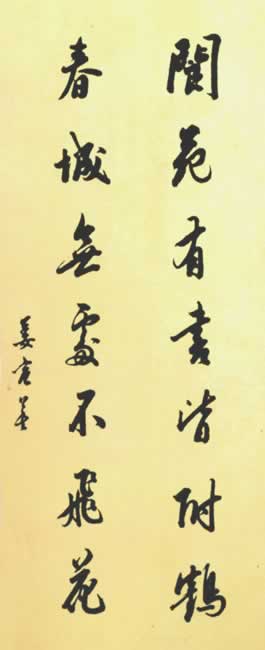 閬苑有書皆附鶴
春城無處不飛花
姜宸英